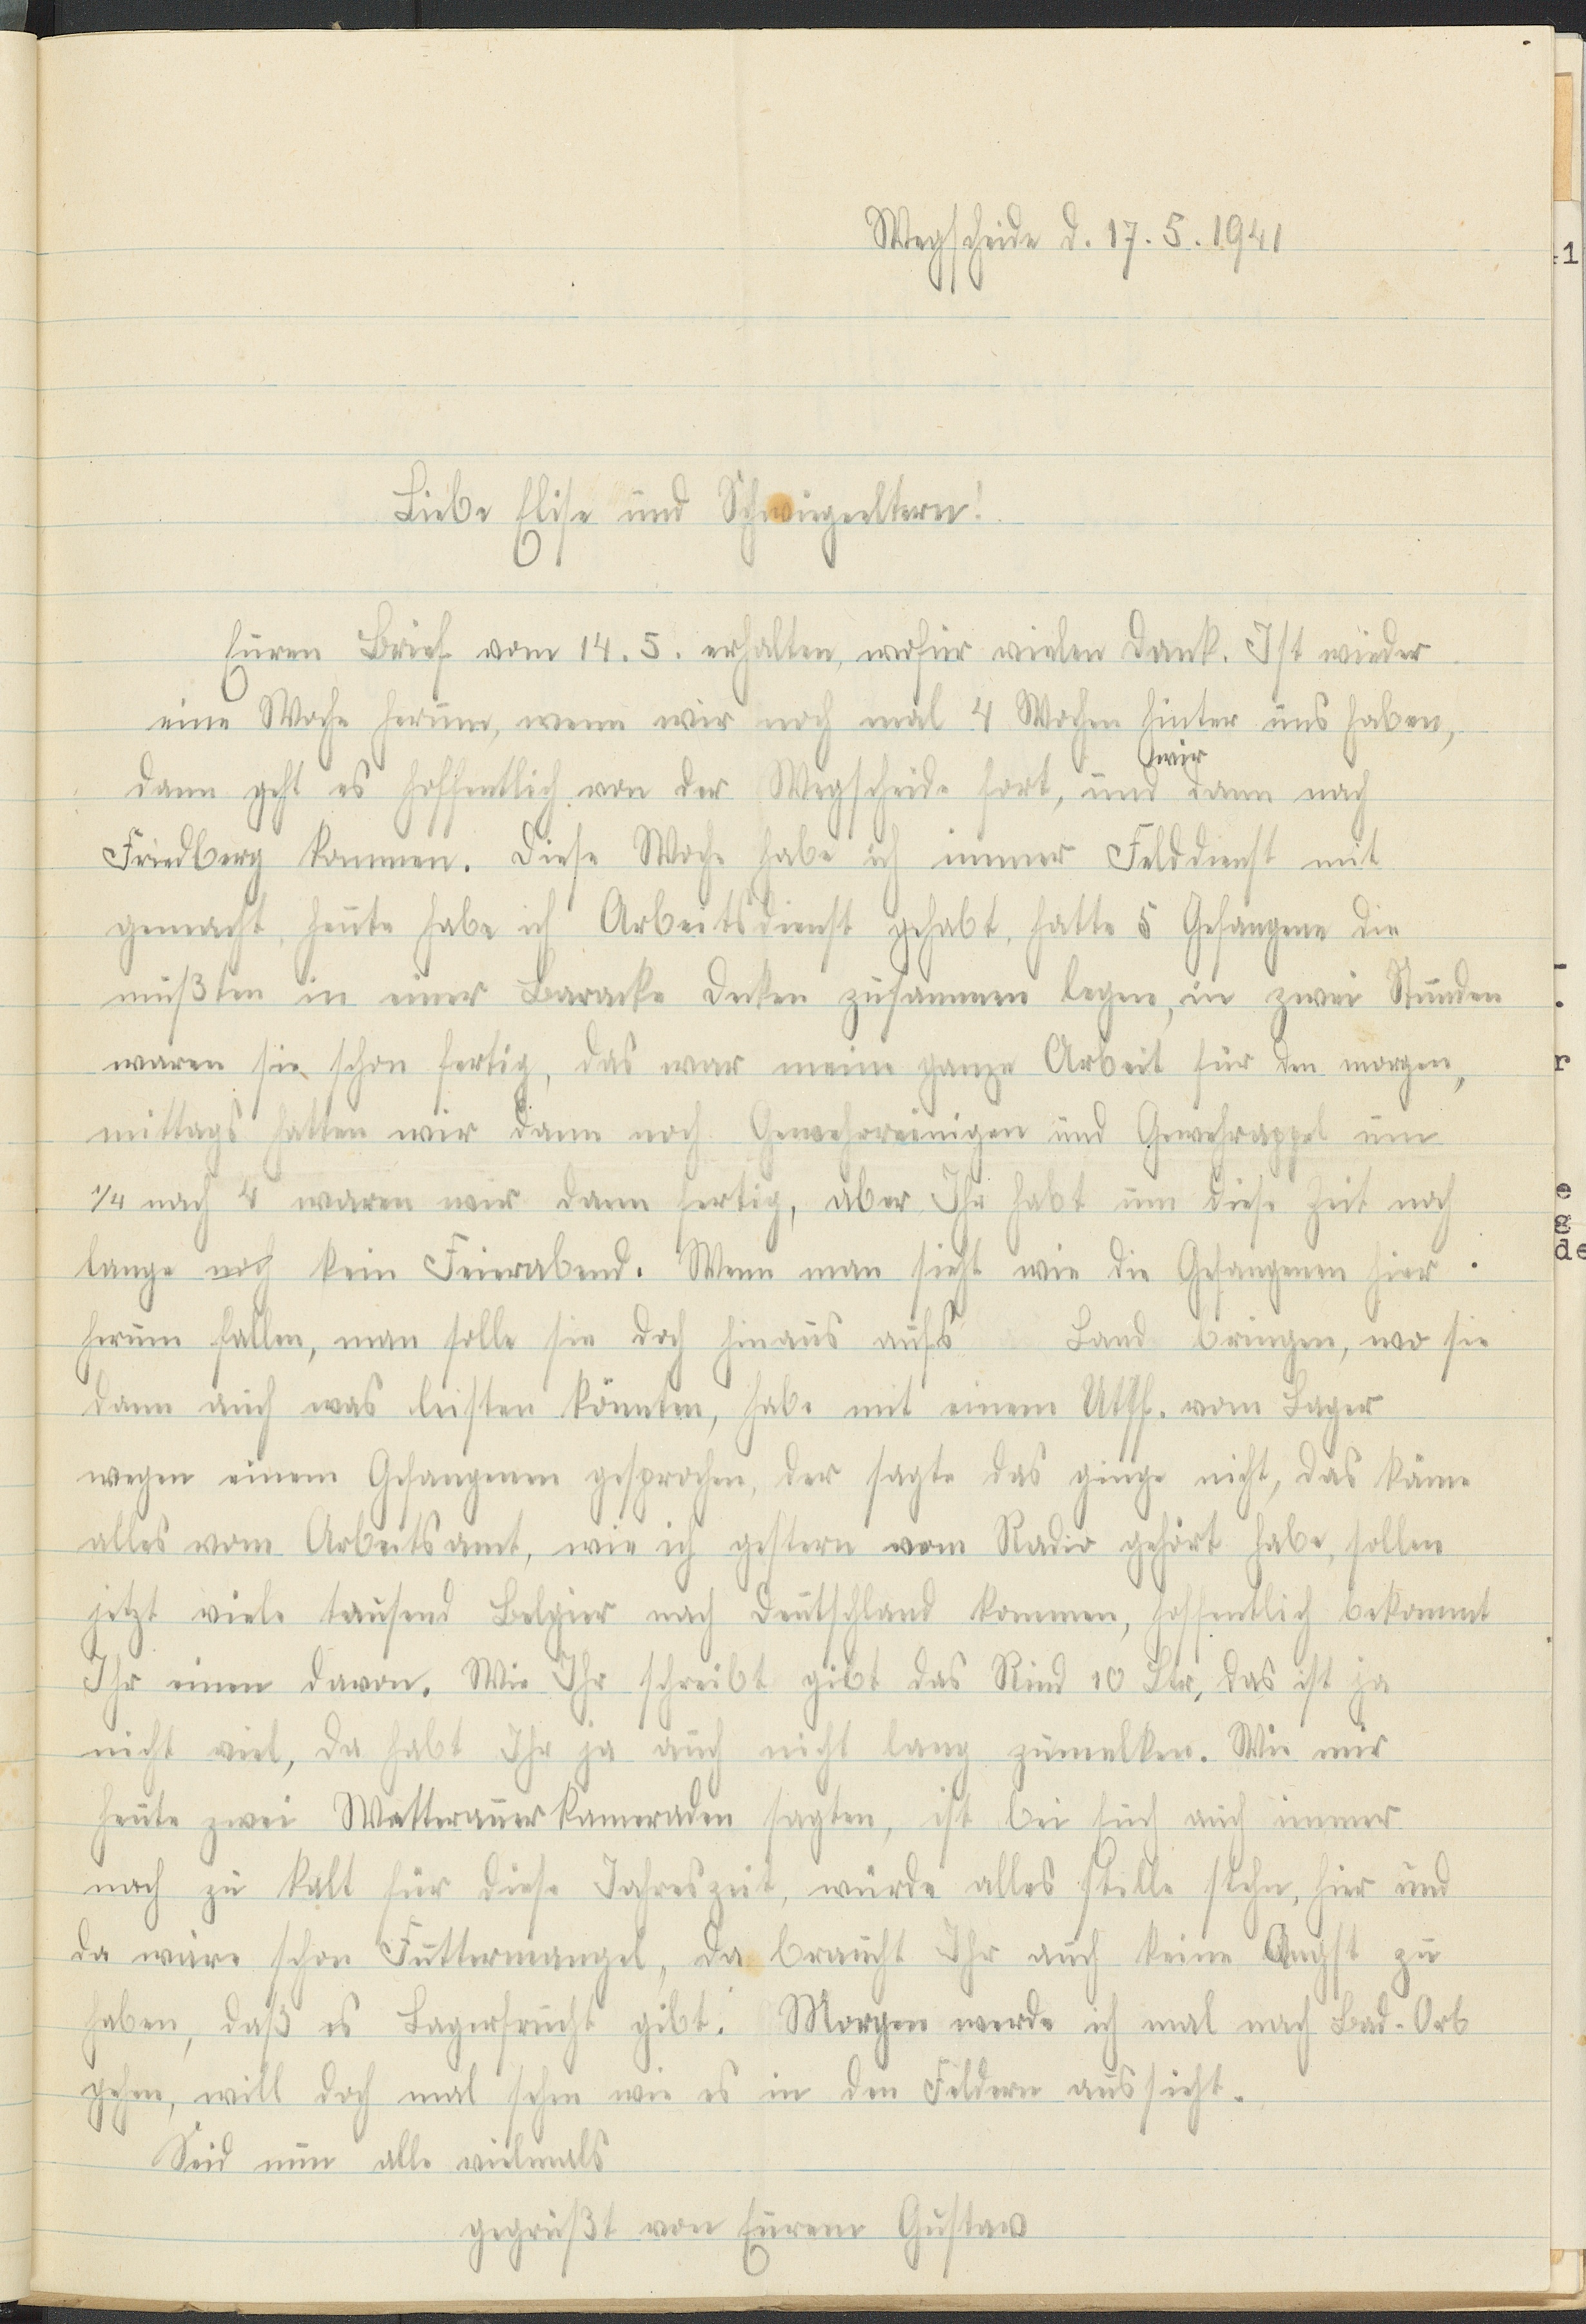 Wegscheide d. 17. 5. 1941
Liebe Elise und Schwiegeeltern!
Euren Brief vom 14. 5. erhalten, wofür vielen Dank. Ist wieder
eine Woche herum, wenn wir noch mal 4 Wochen hinter uns haben,
dann geht es hoffentlich von der Wegscheide fort, und wir dann nach
Friedberg kommen. Diese Woche habe ich immer Felddienst mit
gemacht, heute habe ich Arbeitsdienst gehabt, hatte 5 Gefangene die
mußten in einer Baracke Decken zusammen legen, in zwei Stunden
waren sie schon fertig, das war meine ganze Arbeit für den morgen,
mittags hatten wir dann noch Gewehrreinigen und Gewehrappel um
1/4 nach 4 waren wir dann fertig, aber Ihr habt um diese Zeit noch
lange noch kein Feierabend. Wenn man sieht wie die Gefangenen hier
herum fallen, man solle sie doch hinaus aufs Land bringen, wo sie
dann auch was leisten könnten, habe mit einem Uffz. vom Lager
wegen einem Gefangenen gesprochen, der sagte das ginge nicht, das käme
alles vom Arbeitsamt, wie ich gestern vom Radio gehört habe, sollen
jetzt viele tausend Belgier nach Deutschland kommen, hoffentlich bekommt
Ihr einen davon. Wie Ihr schreibt gibt das Rind 10 Ltr, das ist ja
nicht viel, da habt Ihr ja auch nicht lang zumelken. Wie mir
heute zwei Wetterauer Kameraden sagten, ist bei Euch auch immer
noch zu kalt für diese Jahreszeit, würde alles stille stehn, hier und
da wäre schon Futtermangel, da braucht Ihr auch keine Angst zu
haben, daß es Lagerfrucht gibt. Morgen werde ich mal nach Bad-Orb
gehen, will doch mal sehen wie es in den Feldern aussieht.
Seid nun alle vielmals
gegrüßt von Eurem Gustav
1
-
.
r
e
g
de